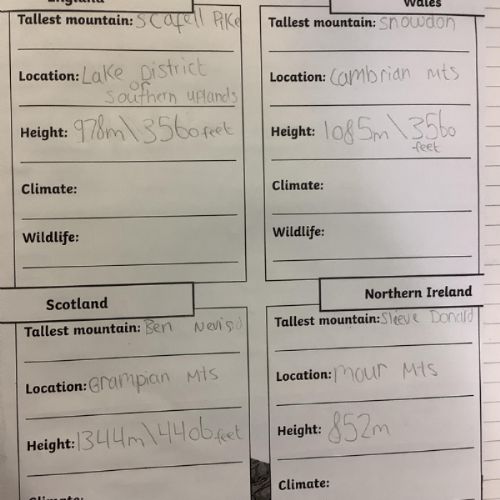 England
Tallest mountain: Scafell Pike
Location: Lake District
or
Southern uplands
Height: 978m\3560feet
Climate:
Wildlife:
Wales
Tallest mountain: Snowdon
Location: Cambrian Mts
Height: 1085m\3560
feet
Climate:
Wildlife:
Scotland
Tallest mountain: Ben Nevis
Location: Grampian Mts
Height: 1344m\4406feet
Climate:
Northern Ireland
Tallest mountain: Sleeve Donald
Location: mour Mts
Height: 852m
Climate: